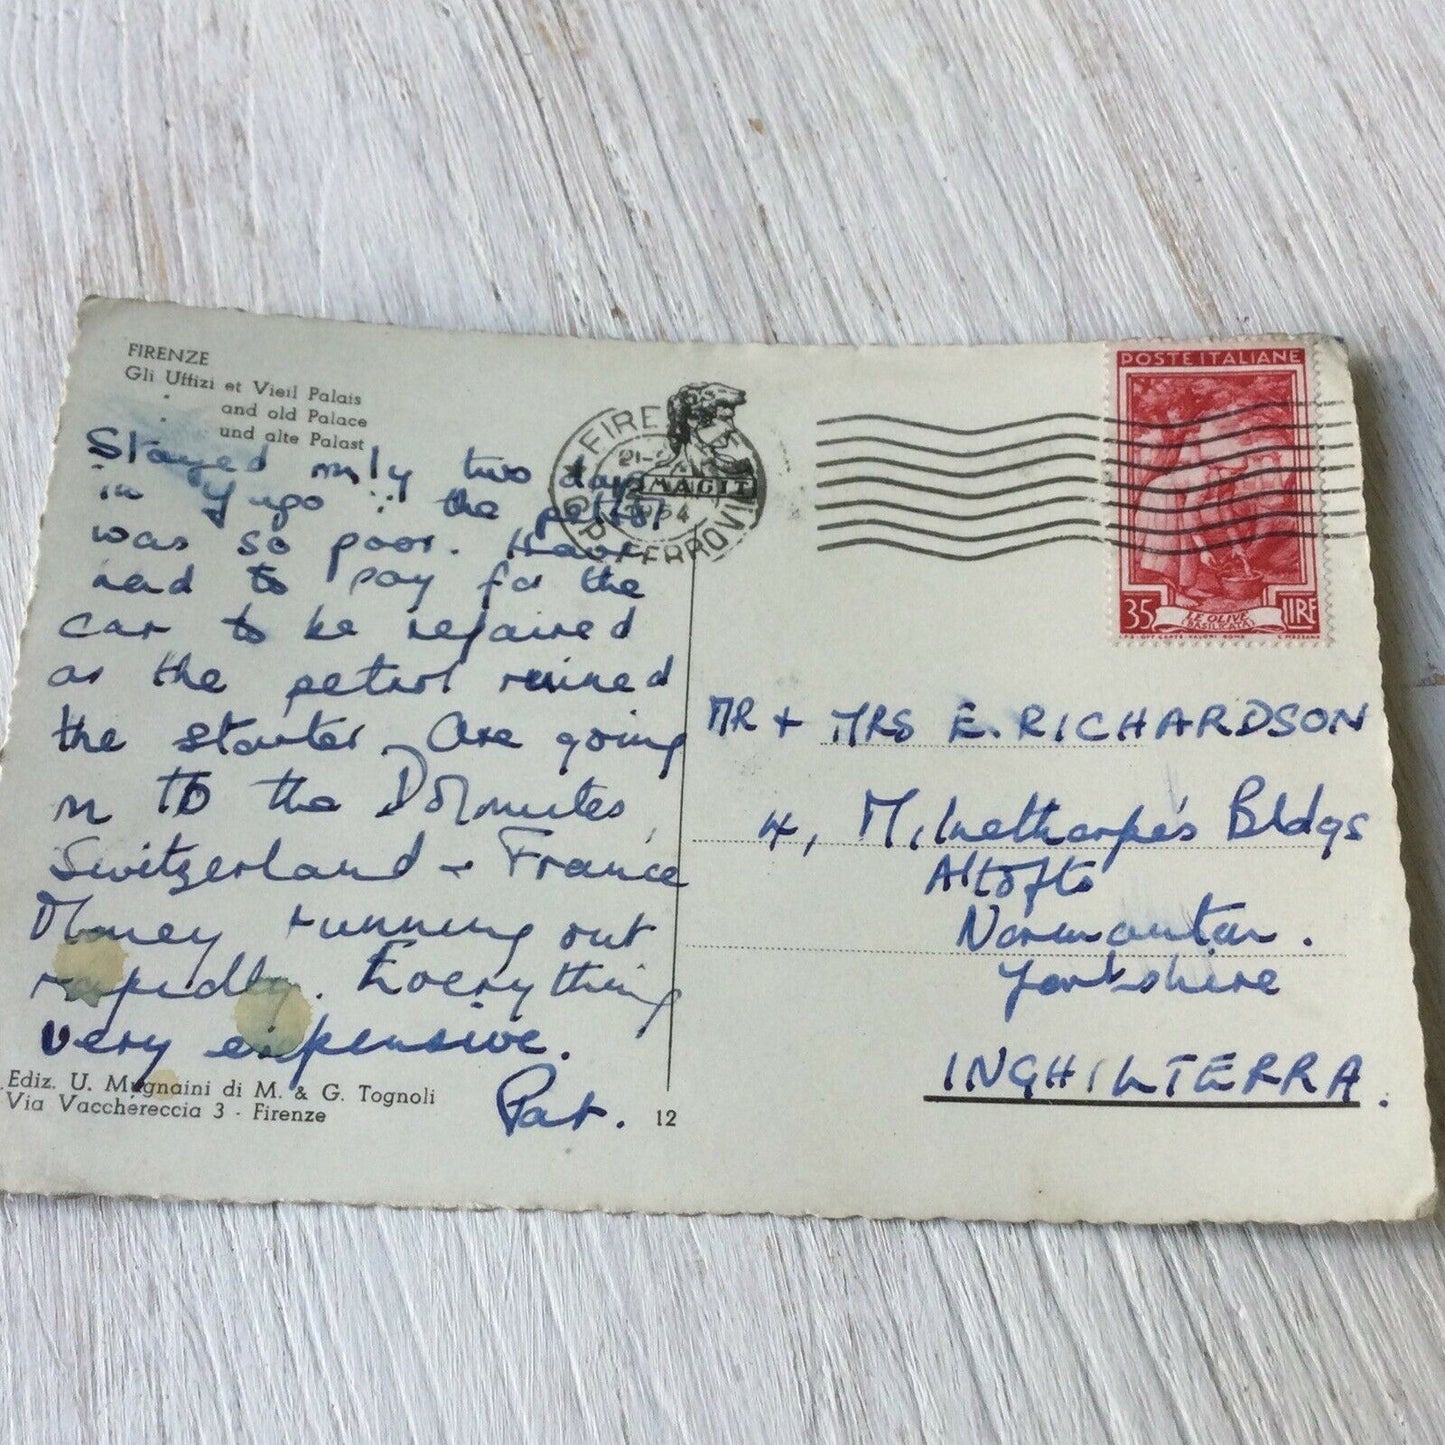 FIRENZE
Gli Uffizi et Vieil Palais
and old Palace
und alte Palast
Stayed only two days
in Yugo ∵ the petrol
was so poor. Have
had to pay for the
car to be repaired
as the petrol ruined
the starter. Are going
on to the Dolomites,
Switzerland + France
Money running out
rapidly. Everything
very expensive.
Pat.
Ediz. U. Mugnaini di M. & G. Tognoli
Via Vacchereccia 3 - Firenze
12
FIRENZE
21-
1954
FERROVIA
POSTE ITALIANE
35 LIRE
LE OLIVE
(BASILICATA)
I.P.S. OFF. CARTE VALORI ROMA C. MEZZANA
MR + MRS E. RICHARDSON
4, Milnethorpe's Bldgs
Altofts
Normanton.
Yorkshire
INGHILTERRA.